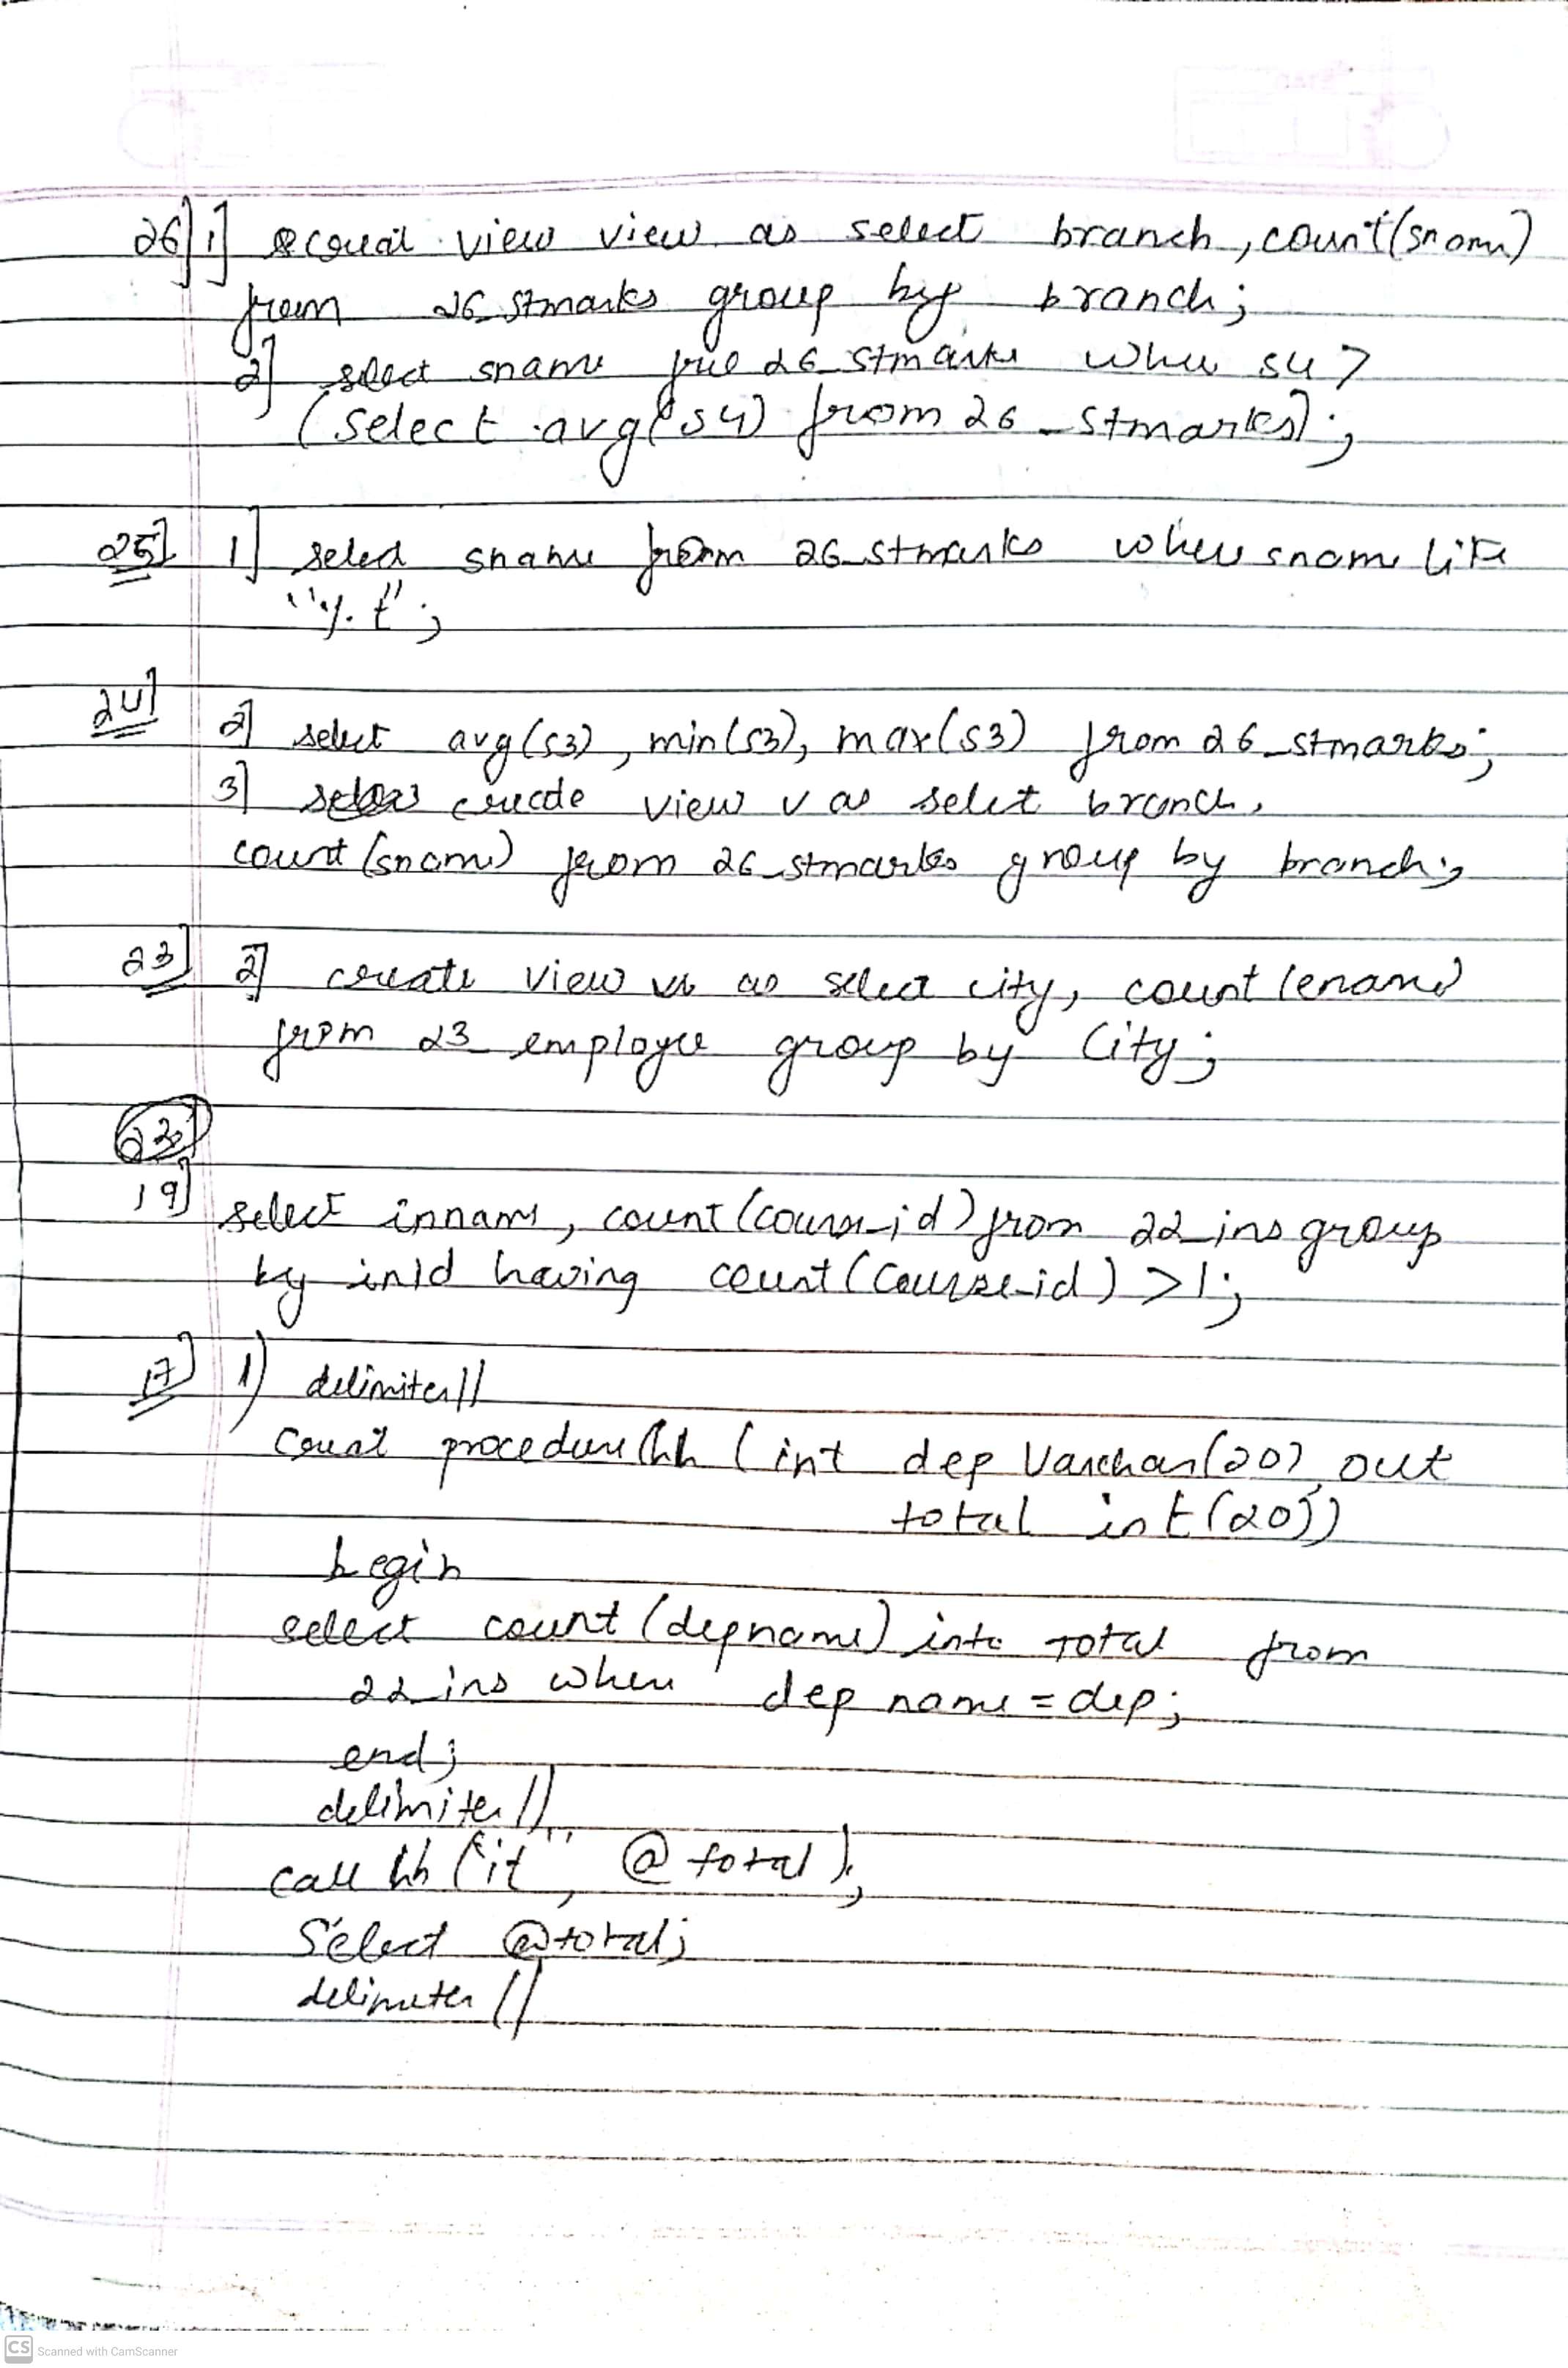 26] 1] create view view as select branch, count(sname)
from 26_stmarks group by branch;
2] select sname from 26_stmarks where s4 >
(select avg(s4) from 26_stmarks);
25] 1] select sname from 26_stmarks where sname like
"%t";
24] 2] select avg(s3), min(s3), max(s3) from 26_stmarks;
3] create view v as select branch,
count(sname) from 26_stmarks group by branch;
23] 2] create view as select city, count(ename)
from 23_employee group by city;
23]
19] select inname, count(course_id) from 22_ins group
by inid having count(course_id) >1;
17] 1) delimiter //
creat procedure hh (int dep Varchar(20), out
total int(20))
begin
select count(depname) into total from
22_ins where depname = dep;
end;
delimiter //
call hh ("it", @total);
Select @total;
delimeter //
CS Scanned with CamScanner